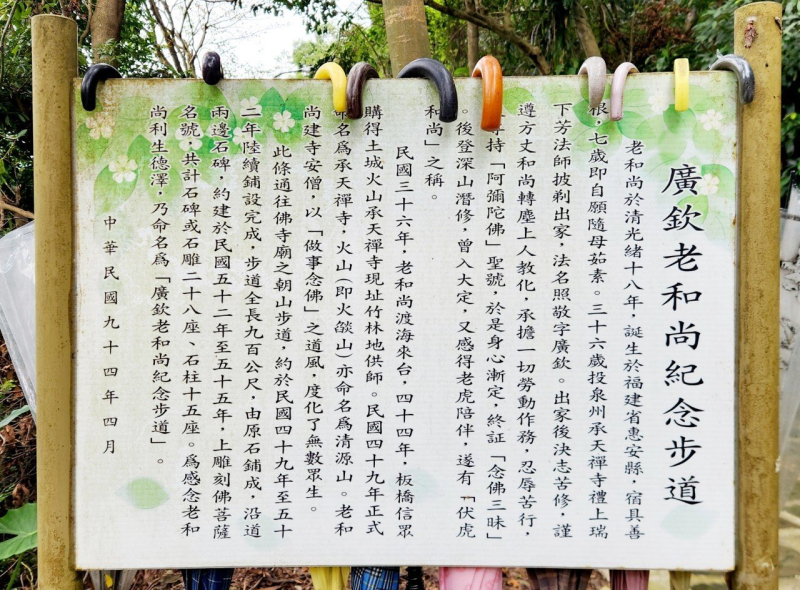 廣欽老和尚紀念步道
老和尚於清光緒十八年，誕生於福建省惠安縣，宿具善
根，七歲即自願隨母茹素。三十六歲投泉州承天禪寺禮上瑞
下芳法師披剃出家，法名照敬字廣欽。出家後決志苦修，謹
遵方丈和尚轉塵上人教化，承擔一切勞動作務，忍辱苦行，
持「阿彌陀佛」聖號，於是身心漸定，終証「念佛三昧」
。後登深山潛修，曾入大定，又感得老虎陪伴，遂有「伏虎
和尚」之稱。
民國三十六年，老和尚渡海來台，四十四年，板橋信眾
購得土城火山承天禪寺現址竹林地供師。民國四十九年正式
命名為承天禪寺，火山（即火燄山）亦命名為清源山。老和
尚建寺安僧，以「做事念佛」之道風，度化了無數眾生。
此條通往佛寺廟之朝山步道，約於民國四十九年至五十
二年陸續鋪設完成，步道全長九百公尺，由原石鋪成，沿道
兩邊石碑，約建於民國五十二年至五十五年，上雕刻佛菩薩
名號，共計石碑或石雕二十八座、石柱十五座。為感念老和
尚利生德澤，乃命名為「廣欽老和尚紀念步道」。
中華民國九十四年四月